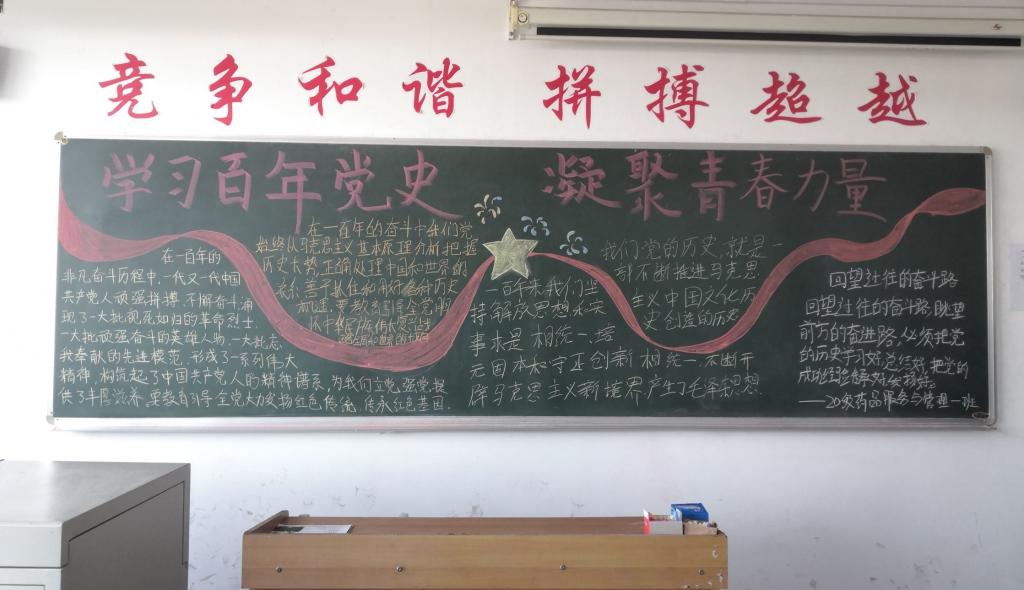 竞争和谐 拼搏超越
学习百年党史 凝聚青春力量
在一百年的
非凡奋斗历程中,一代又一代中国
共产党人顽强拼搏,不懈奋斗涌
现了一大批视死如归的革命烈士、
一大批顽强奋斗的英雄人物、一大批忘
我奉献的先进模范,形成了一系列伟大
精神,构筑起了中国共产党人的精神谱系,为我们立党兴党强党提
供了丰厚滋养。要教育引导全党大力发扬红色传统,传承红色基因.
在一百年的奋斗中我们党
始终以马克思主义基本原理分析把握
历史大势,正确处理中国和世界的
关系,善于抓住和用好各种历史
机遇,要教育引导全党
我们党的历史,就是一
部不断推进马克思
主义中国文化历
史创造的历史
一百年来我们党
持解放思想和实
事求是相统一、培
元固本和守正创新相统一,不断开
辟马克思主义新境界产生了毛泽东思想.
回望过往的奋斗路
回望过往的奋斗路,眺望
前方的奋进路,必须把党
的历史学习好,总结好,把党的
成功经验
——20级药品服务与管理一班